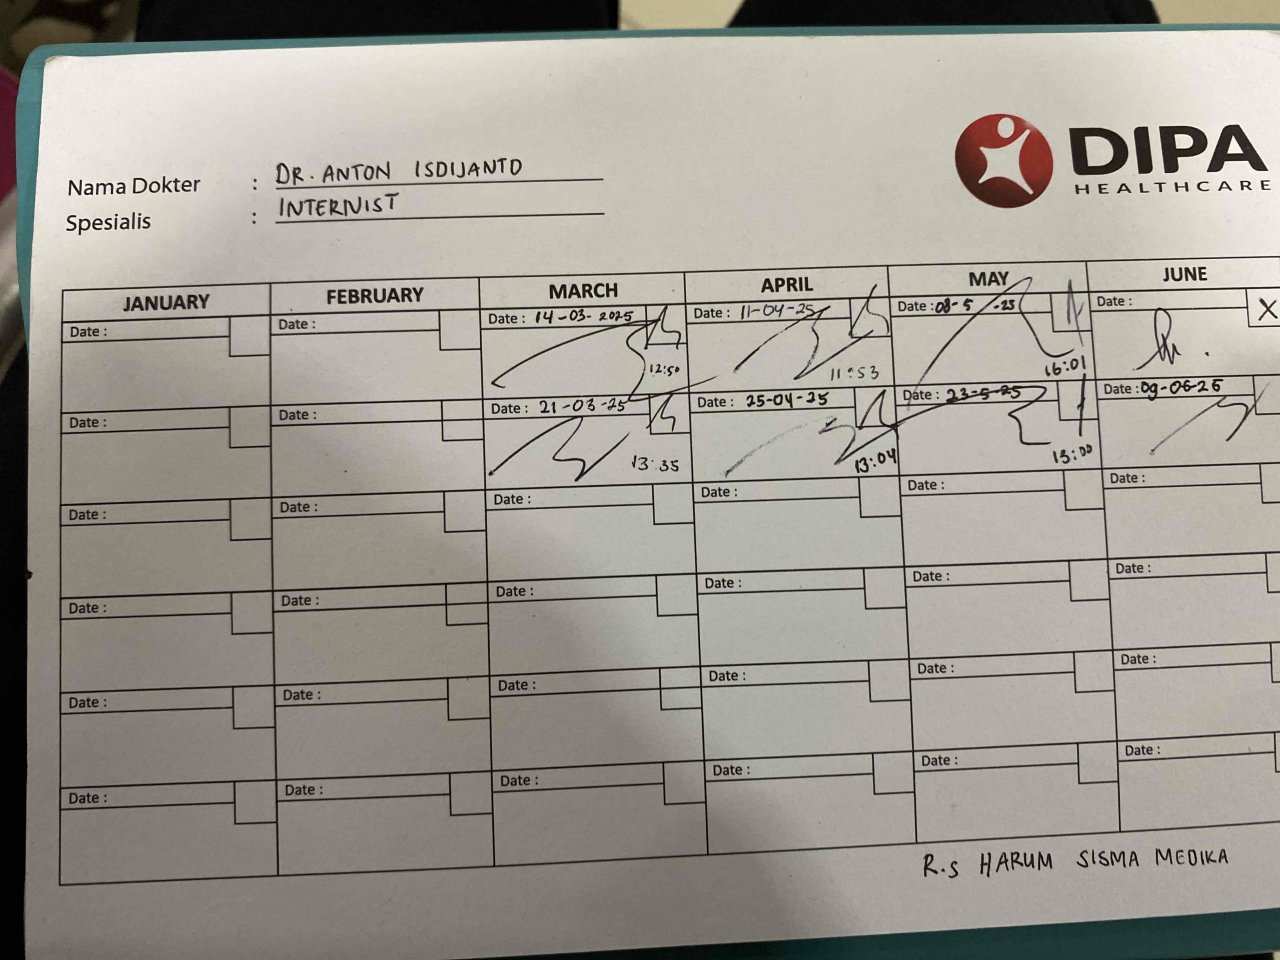 DIPA
HEALTHCARE
Nama Dokter : DR. ANTON ISDIJANTO
Spesialis : INTERNIST
JANUARY FEBRUARY MARCH APRIL MAY JUNE
Date : Date : Date : 14-03-2025 Date : 11-04-25 Date : 08-5-25 Date : X
12:50 11:53 16:01
Date : Date : Date : 21-03-25 Date : 25-04-25 Date : 23-5-25 Date : 09-06-25
13:35 13:04 13:00
Date : Date : Date : Date : Date : Date :
Date : Date : Date : Date : Date : Date :
Date : Date : Date : Date : Date : Date :
Date : Date : Date : Date : Date : Date :
R.S HARUM SISMA MEDIKA